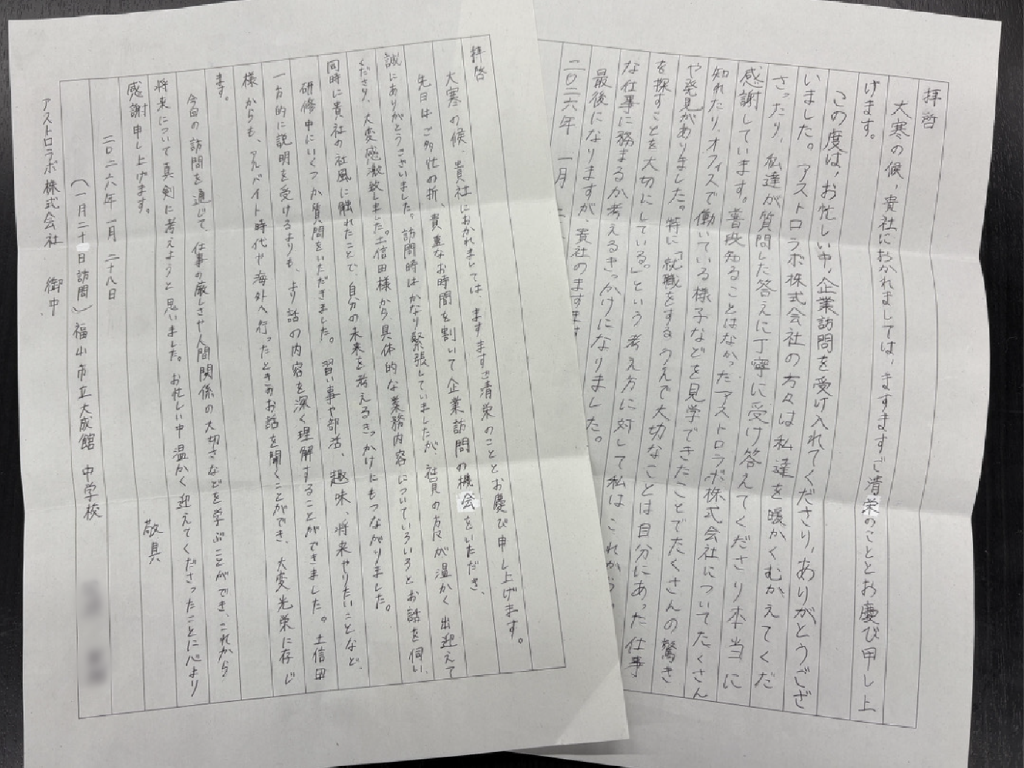 拝啓
大寒の候、貴社におかれましては、ますますご清栄のこととお慶び申し上
げます。
この度は、お忙しい中、企業訪問を受け入れてくださり、ありがとうござ
いました。アストロラボ株式会社の方々は私達を暖かくむかえてくだ
さったり、私達が質問した答えに丁寧に受け答えてくださり本当に
感謝しています。普段知ることはなかったアストロラボ株式会社についてたくさん
知れたり、オフィスで働いている様子などを見学できたことでたくさんの驚き
や発見がありました。特に「就職をするうえで大切なことは自分にあった仕事
を探すことを大切にしている。」という考え方に対して私はこれから
な仕事に務まるか考えるきっかけになりました。
最後になりますが、貴社のますます
二〇二六年 一月
拝啓
大寒の候、貴社におかれましては、ますますご清栄のこととお慶び申し上げます。
先日はご多忙の折、貴重なお時間を割いて企業訪問の機会をいただき、
誠にありがとうございました。訪問時はかなり緊張していましたが、社員の方々が温かく出迎えて
くださり、大変感激致しました。土信田様から具体的な業務内容についていろいろとお話を伺い、
同時に貴社の社風に触れたことで、自分の未来を考えるきっかけにもつながりました。
研修中にいくつか質問をいただきました。習い事や部活、趣味、将来やりたいことなど、
一方的に説明を受けるよりも、より話の内容を深く理解することができました。土信田
様からも、アルバイト時代や海外へ行ったときのお話を聞くことができ、大変光栄に存じ
ます。
今回の訪問を通じて、仕事の厳しさや人間関係の大切さなどを学ぶことができ、これから
将来について真剣に考えようと思いました。お忙しい中温かく迎えてくださったことに心より
感謝申し上げます。
敬具
二〇二六年 一月 二十八日
(一月二十日訪問) 福山市立大成館 中学校
アストロラボ株式会社 御中